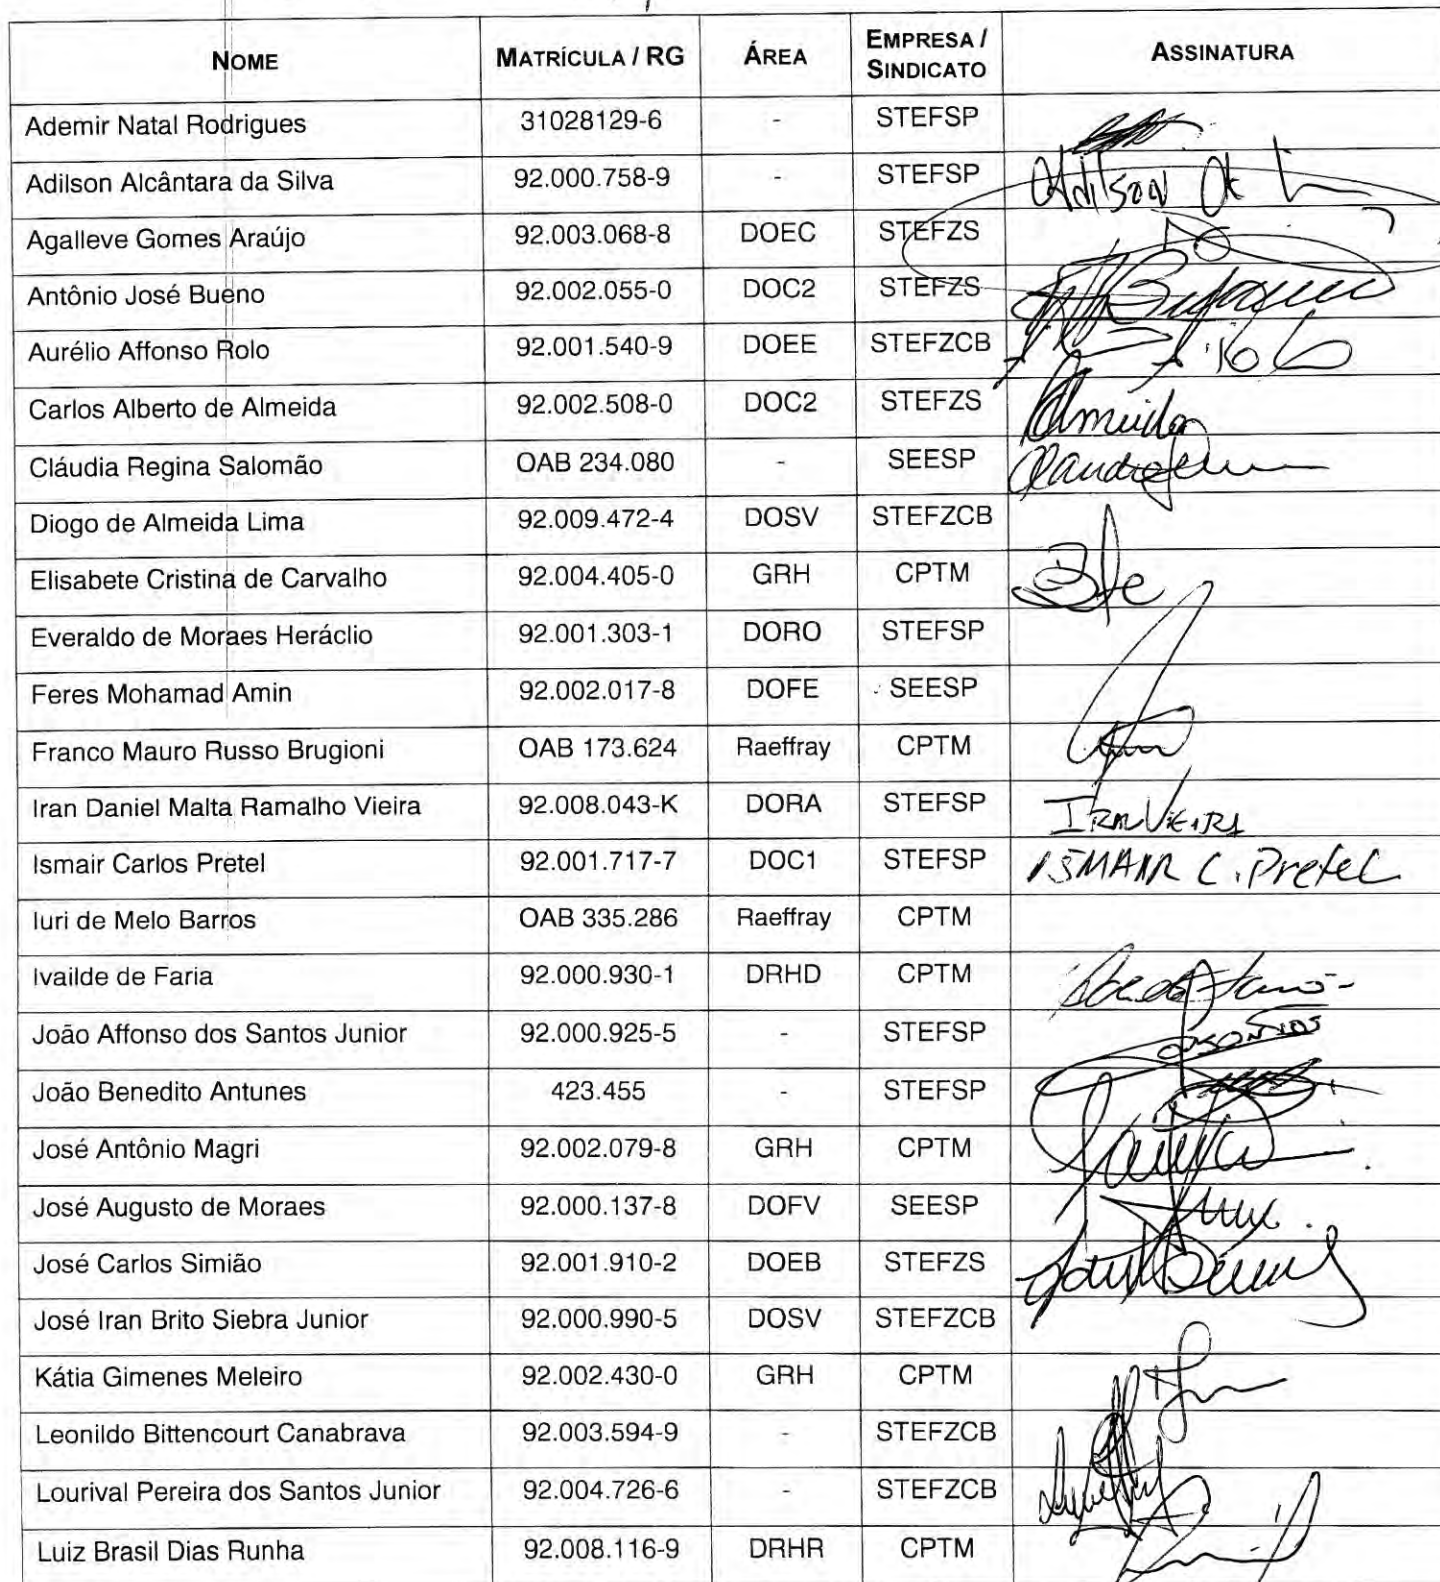 NOME MATRÍCULA / RG ÁREA EMPRESA / SINDICATO ASSINATURA
Ademir Natal Rodrigues 31028129-6 - STEFSP
Adilson Alcântara da Silva 92.000.758-9 - STEFSP Adilson
Agalleve Gomes Araújo 92.003.068-8 DOEC STEFZS
Antônio José Bueno 92.002.055-0 DOC2 STEFZS
Aurélio Affonso Rolo 92.001.540-9 DOEE STEFZCB
Carlos Alberto de Almeida 92.002.508-0 DOC2 STEFZS Almeida
Cláudia Regina Salomão OAB 234.080 - SEESP
Diogo de Almeida Lima 92.009.472-4 DOSV STEFZCB
Elisabete Cristina de Carvalho 92.004.405-0 GRH CPTM
Everaldo de Moraes Heráclio 92.001.303-1 DORO STEFSP
Feres Mohamad Amin 92.002.017-8 DOFE SEESP
Franco Mauro Russo Brugioni OAB 173.624 Raeffray CPTM
Iran Daniel Malta Ramalho Vieira 92.008.043-K DORA STEFSP IRAN VIEIRA
Ismair Carlos Pretel 92.001.717-7 DOC1 STEFSP ISMAIR C. Pretel
Iuri de Melo Barros OAB 335.286 Raeffray CPTM
Ivailde de Faria 92.000.930-1 DRHD CPTM
João Affonso dos Santos Junior 92.000.925-5 - STEFSP
João Benedito Antunes 423.455 - STEFSP
José Antônio Magri 92.002.079-8 GRH CPTM
José Augusto de Moraes 92.000.137-8 DOFV SEESP
José Carlos Simião 92.001.910-2 DOEB STEFZS
José Iran Brito Siebra Junior 92.000.990-5 DOSV STEFZCB
Kátia Gimenes Meleiro 92.002.430-0 GRH CPTM
Leonildo Bittencourt Canabrava 92.003.594-9 - STEFZCB
Lourival Pereira dos Santos Junior 92.004.726-6 - STEFZCB
Luiz Brasil Dias Runha 92.008.116-9 DRHR CPTM